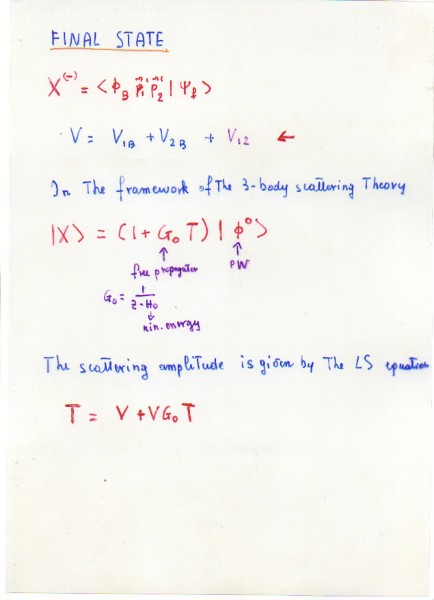 FINAL STATE
X⁽⁻⁾ = <ϕ_B p⃗₁ p⃗₂ | Ψ_f >
V = V_1B + V_2B + V_12 ←
In The framework of The 3-body scattering Theory
|X> = (1 + G₀ T) | ϕ⁰>
↑ ↑
free propagator PW
G₀ = 1/(z - H₀)
↓
kin. energy
The scattering amplitude is given by The LS equation
T = V + V G₀ T